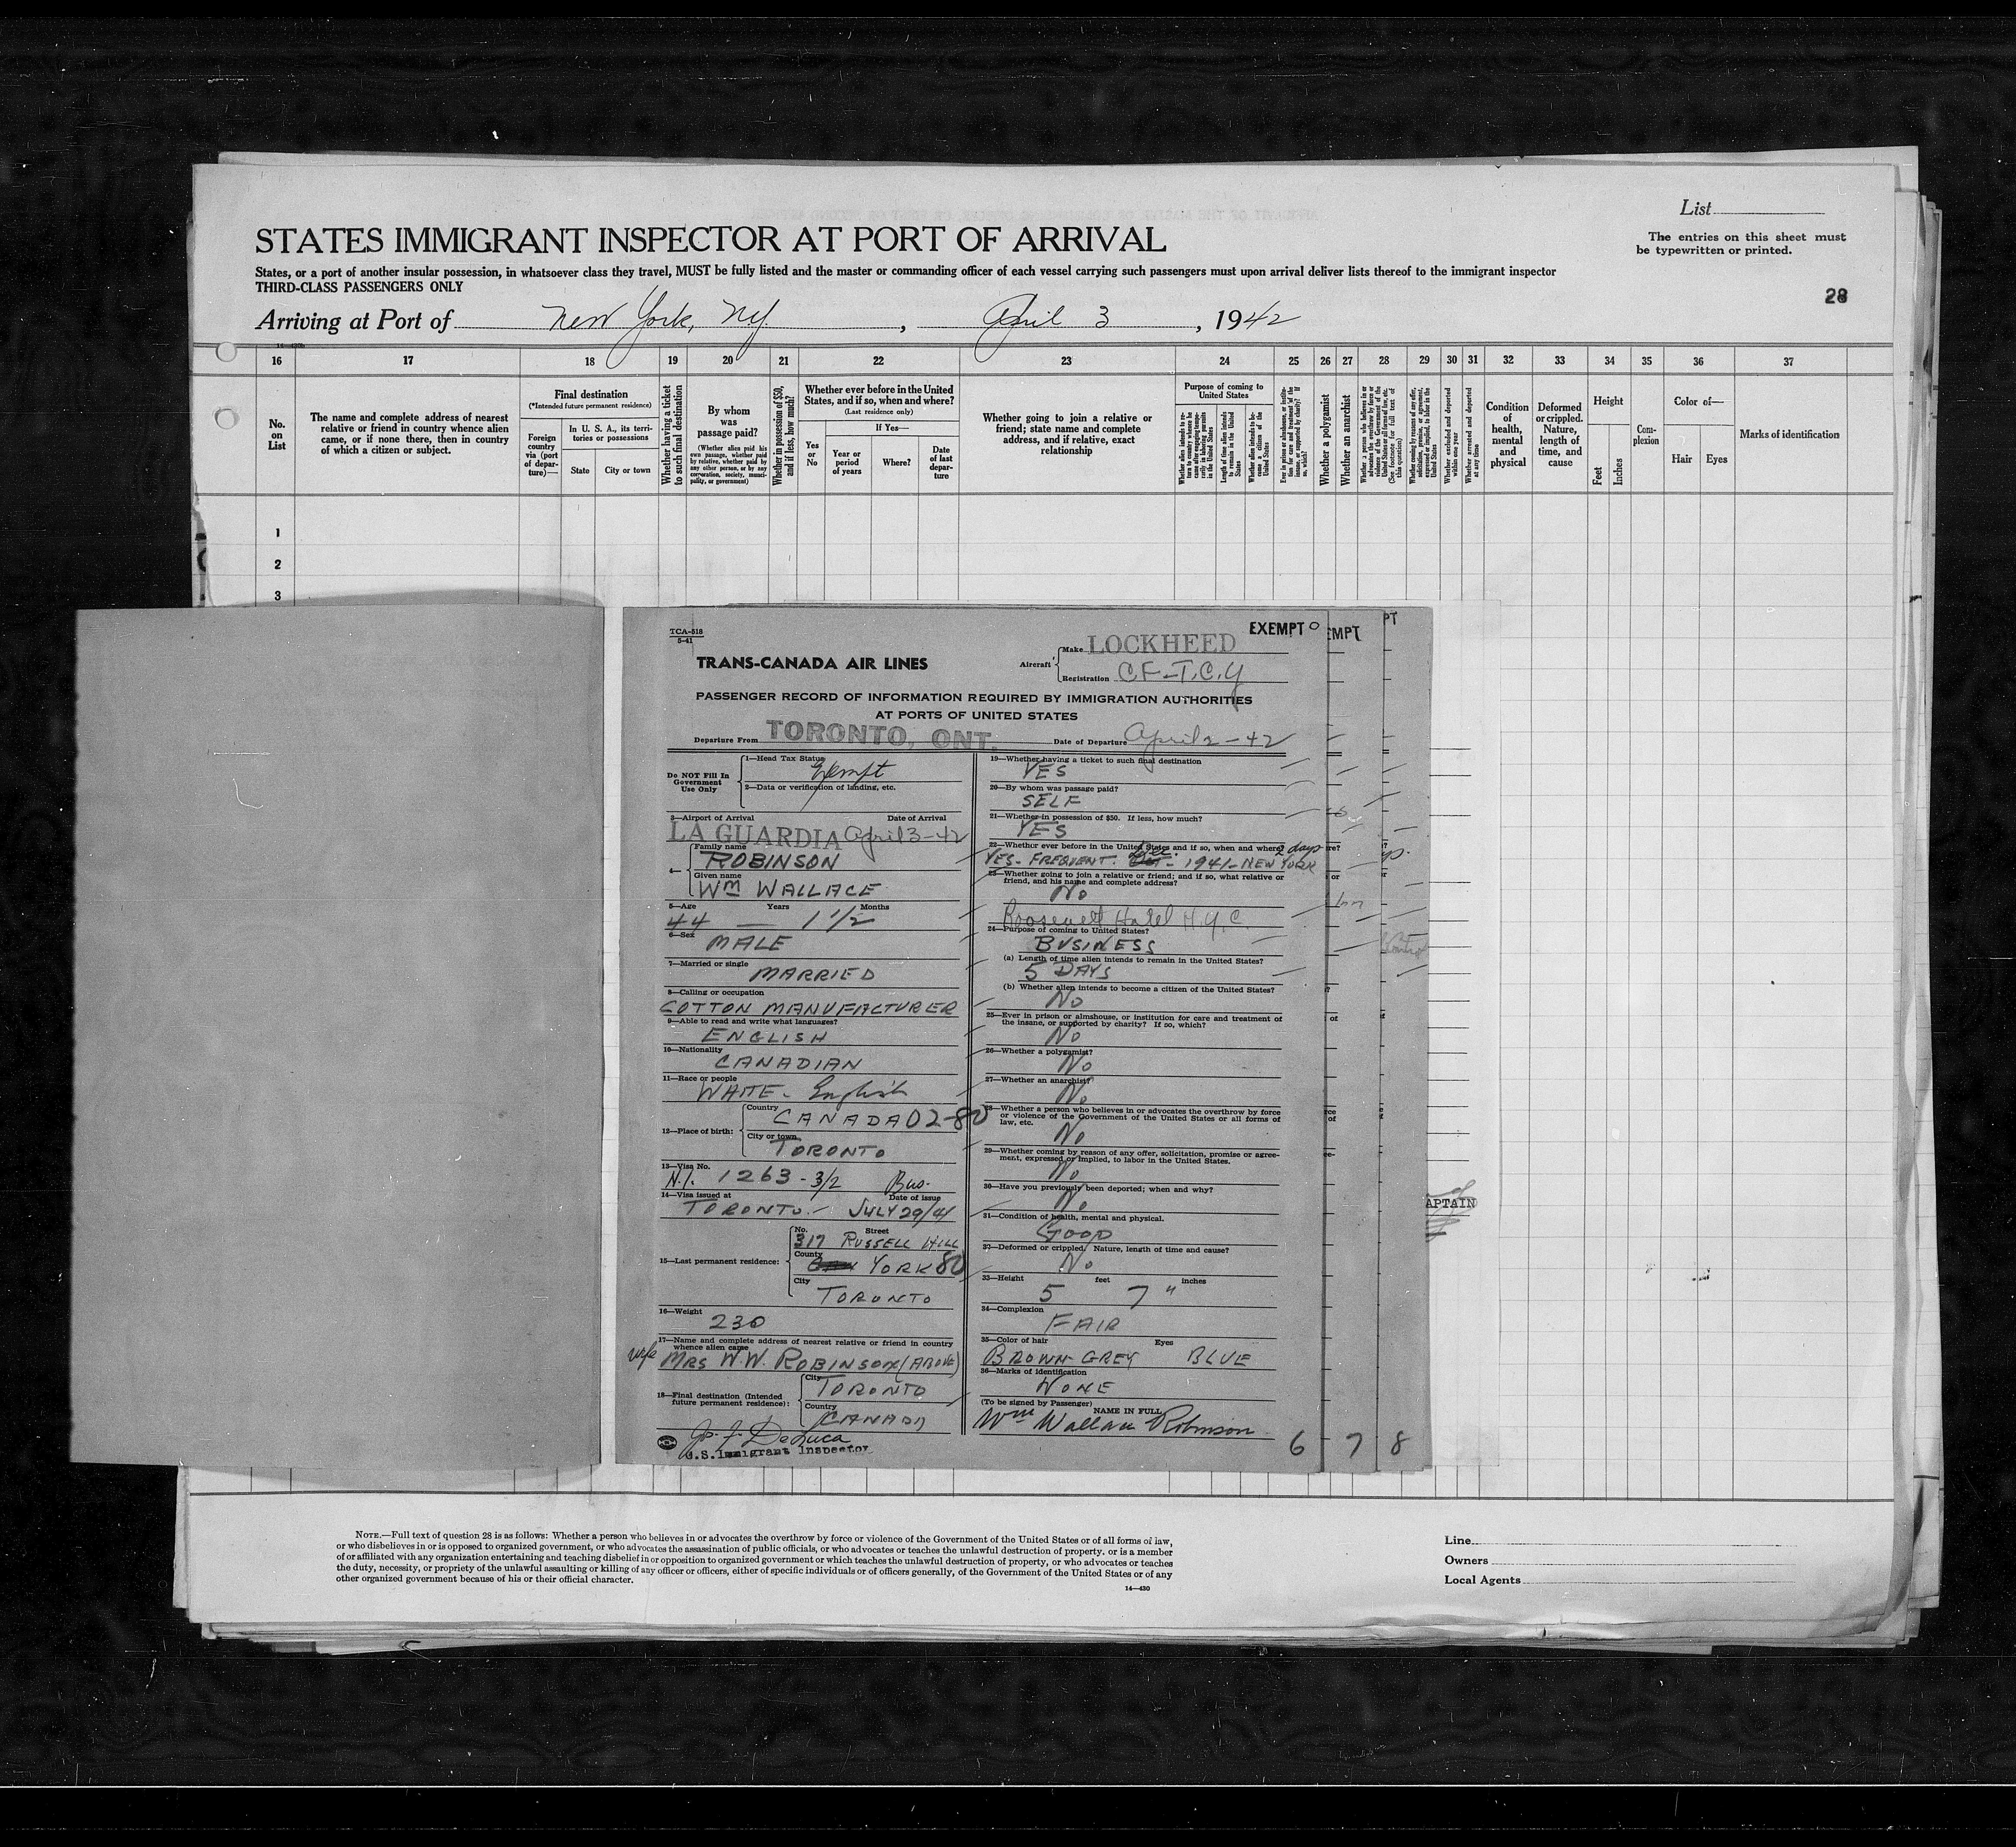 List
STATES IMMIGRANT INSPECTOR AT PORT OF ARRIVAL
The entries on this sheet must
be typewritten or printed.
States, or a port of another insular possession, in whatsoever class they travel, MUST be fully listed and the master or commanding officer of each vessel carrying such passengers must upon arrival deliver lists thereof to the immigrant inspector
THIRD-CLASS PASSENGERS ONLY
28
Arriving at Port of New York, N.Y. , April 3 , 1942
16 17 18 19 20 21 22 23 24 25 26 27 28 29 30 31 32 33 34 35 36 37
No.
on
List
The name and complete address of nearest
relative or friend in country whence alien
came, or if none there, then in country
of which a citizen or subject.
Final destination
(*Intended future permanent residence)
Foreign
country
via (port
of depar-
ture)—
In U. S. A., its terri-
tories or possessions
State
City or town
Whether having a ticket
to such final destination
By whom
was
passage paid?
(Whether alien paid his
own passage, whether paid
by relative, whether paid by
any other person, or by any
corporation, society, munici-
pality, or government)
Whether in possession of $50,
and if less, how much?
Whether ever before in the United
States, and if so, when and where?
(Last residence only)
Yes
or
No
If Yes—
Year or
period
of years
Where?
Date
of last
depar-
ture
Whether going to join a relative or
friend; state name and complete
address, and if relative, exact
relationship
Purpose of coming to
United States
Whether alien intends to re-
turn to country whence he
came after engaging tempo-
rarily in laboring pursuits
in the United States
Length of time alien intends
to remain in the United
States
Whether alien intends to be-
come a citizen of the
United States
Ever in prison or almshouse, or institu-
tion for care and treatment of the
insane, or supported by charity? If
so, which?
Whether a polygamist
Whether an anarchist
Whether excluded and deported
within one year
Whether arrested and deported
at any time
Condition
of
health,
mental
and
physical
Deformed
or crippled.
Nature,
length of
time, and
cause
Height
Feet
Inches
Com-
plexion
Color of—
Hair
Eyes
Marks of identification
1
2
3
TCA-518
5-41
TRANS-CANADA AIR LINES
Aircraft
Make LOCKHEED
Registration CF-T.C.Y
EXEMPT
EMPT
PT
PASSENGER RECORD OF INFORMATION REQUIRED BY IMMIGRATION AUTHORITIES
AT PORTS OF UNITED STATES
Departure From TORONTO, ONT. Date of Departure April 2-42
Do NOT Fill In
Government
Use Only
1—Head Tax Status
Exempt
2—Data or verification of landing, etc.
3—Airport of Arrival Date of Arrival
LA GUARDIA April 3-42
4—
Family name
ROBINSON
Given name
Wm WALLACE
5—Age Years Months
44 — 1 1/2
6—Sex
MALE
7—Married or single
MARRIED
8—Calling or occupation
COTTON MANUFACTURER
9—Able to read and write what languages?
ENGLISH
10—Nationality
CANADIAN
11—Race or people
WHITE - English
12—Place of birth:
Country
CANADA 02-80
City or town
TORONTO
13—Visa No.
N.I. 1263 - 3/2 Bus.
14—Visa issued at Date of issue
TORONTO - JULY 29/41
15—Last permanent residence:
No. Street
317 RUSSELL HILL
County
YORK 80
City
TORONTO
16—Weight
230
17—Name and complete address of nearest relative or friend in country
whence alien came
wife MRS W.W. ROBINSON (ABOVE)
18—Final destination (Intended
future permanent residence):
City
TORONTO
Country
CANADA
Jos. F. DeLuca
U.S. Immigrant Inspector
19—Whether having a ticket to such final destination
YES
20—By whom was passage paid?
SELF
21—Whether in possession of $50. If less, how much?
YES
22—Whether ever before in the United States and if so, when and where? 2 days
YES - FREQUENT. Dec. - 1941 - NEW YORK
23—Whether going to join a relative or friend; and if so, what relative or
friend, and his name and complete address?
No
Roosevelt Hotel N.Y.C.
24—Purpose of coming to United States?
BUSINESS
(a) Length of time alien intends to remain in the United States?
5 DAYS
(b) Whether alien intends to become a citizen of the United States?
No
25—Ever in prison or almshouse, or institution for care and treatment of
the insane, or supported by charity? If so, which?
No
26—Whether a polygamist?
No
27—Whether an anarchist?
No
28—Whether a person who believes in or advocates the overthrow by force
or violence of the Government of the United States or all forms of
law, etc.
No
29—Whether coming by reason of any offer, solicitation, promise or agree-
ment, expressed or implied, to labor in the United States.
No
30—Have you previously been deported; when and why?
No
31—Condition of health, mental and physical.
GOOD
32—Deformed or crippled. Nature, length of time and cause?
No
33—Height feet inches
5 7 "
34—Complexion
FAIR
35—Color of hair Eyes
BROWN-GREY BLUE
36—Marks of identification
NONE
(To be signed by Passenger)
NAME IN FULL
Wm Wallace Robinson
6 7 8
APTAIN
NOTE.—Full text of question 28 is as follows: Whether a person who believes in or advocates the overthrow by force or violence of the Government of the United States or of all forms of law,
or who disbelieves in or is opposed to organized government, or who advocates the assassination of public officials, or who advocates or teaches the unlawful destruction of property, or is a member
of or affiliated with any organization entertaining and teaching disbelief in or opposition to organized government or which teaches the unlawful destruction of property, or who advocates or teaches
the duty, necessity, or propriety of the unlawful assaulting or killing of any officer or officers, either of specific individuals or of officers generally, of the Government of the United States or of any
other organized government because of his or their official character.
14—430
Line
Owners
Local Agents